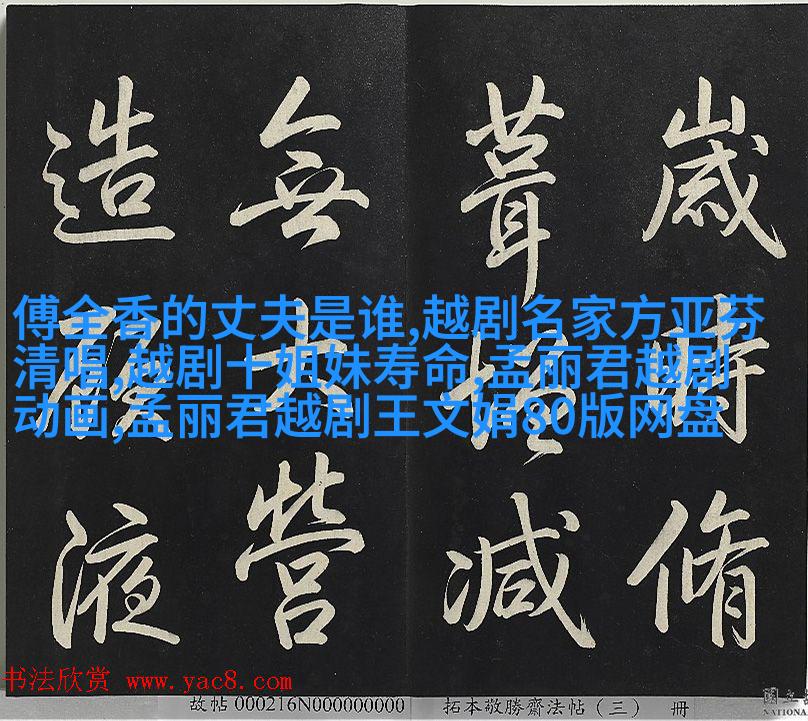 歲時脩
葺增減
無大營
造液
傅全香的丈夫是谁,越剧名家方亚芬
清唱,越剧十姐妹寿命,孟丽君越剧
动画,孟丽君越剧王文娟80版网盘
书法欣赏 www.yac8.com
故帖 000216N000000000 拓本敬勝齋法帖（三） 冊
國立
NATIONA